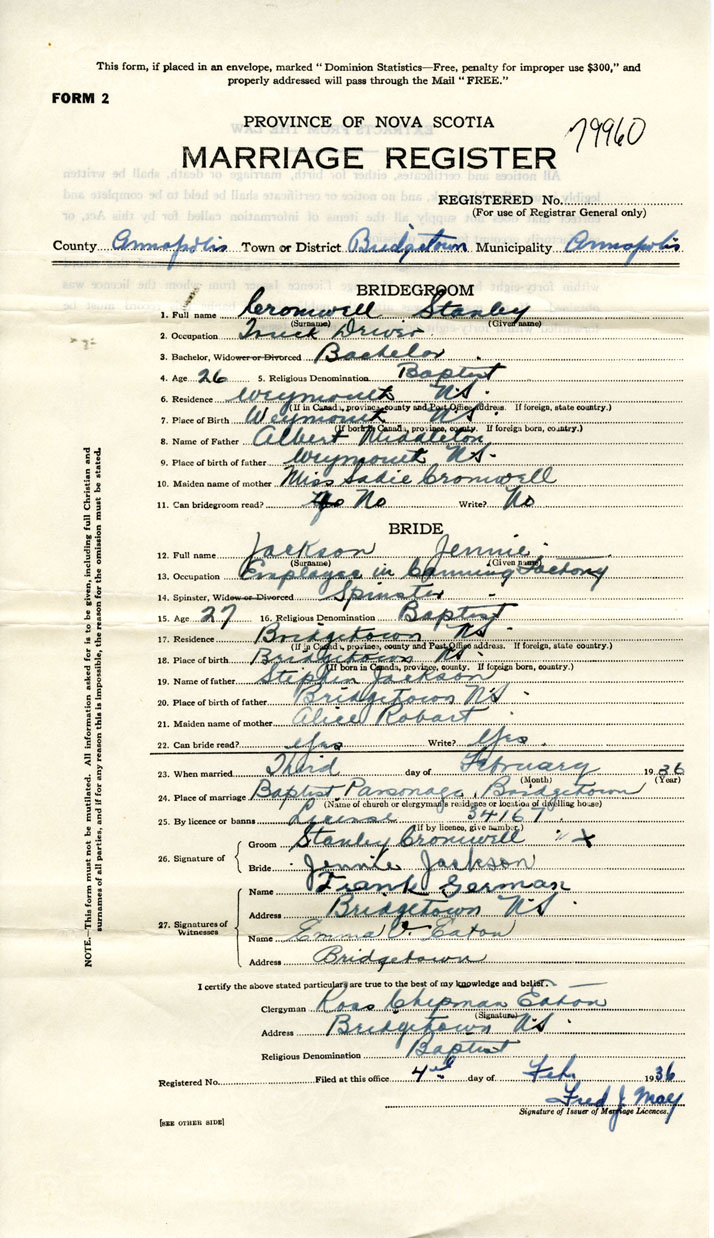 This form, if placed in an envelope, marked "Dominion Statistics—Free, penalty for improper use $300," and
properly addressed will pass through the Mail "FREE."
FORM 2
PROVINCE OF NOVA SCOTIA
79960
MARRIAGE REGISTER
REGISTERED No.
(For use of Registrar General only)
County Annapolis Town or District Bridgetown Municipality Annapolis
BRIDEGROOM
1. Full name Cromwell Stanley
(Surname) (Given name)
2. Occupation Truck Driver
3. Bachelor, Widower or Divorced Bachelor
4. Age 26 5. Religious Denomination Baptist
6. Residence Weymouth N.S.
(If in Canada, province, county and Post Office address. If foreign, state country.)
7. Place of Birth Weymouth N.S.
(If born in Canada, province, county. If foreign born, country.)
8. Name of Father Albert Middleton
9. Place of birth of father Weymouth N.S.
10. Maiden name of mother Miss Sadie Cromwell
11. Can bridegroom read? No Write? No
BRIDE
12. Full name Jackson Jennie
(Surname) (Given name)
13. Occupation Employee in Canning Factory
14. Spinster, Widow or Divorced Spinster
15. Age 27 16. Religious Denomination Baptist
17. Residence Bridgetown N.S.
(If in Canada, province, county and Post Office address. If foreign, state country.)
18. Place of birth Bridgetown N.S.
(If born in Canada, province, county. If foreign born, country.)
19. Name of father Stephen Jackson
20. Place of birth of father Bridgetown N.S.
21. Maiden name of mother Alice Robart
22. Can bride read? Yes Write? Yes.
23. When married Third day of February 1936
(Month) (Year)
24. Place of marriage Baptist Parsonage, Bridgetown
(Name of church or clergyman's residence or location of dwelling house)
25. By licence or banns License 34167
(If by licence, give number)
26. Signature of
Groom Stanley Cromwell X
Bride Jennie Jackson
27. Signatures of Witnesses
Name Frank German
Address Bridgetown N.S.
Name Emma V. Eaton
Address Bridgetown
I certify the above stated particulars are true to the best of my knowledge and belief.
Clergyman Ross Chipman Eaton
(Signature)
Address Bridgetown N.S.
Religious Denomination Baptist
Registered No. Filed at this office 4th day of Feb. 1936
Fred J. May
Signature of Issuer of Marriage Licences.
[SEE OTHER SIDE]
NOTE.—This form must not be mutilated. All information asked for is to be given, including full Christian and
surnames of all parties, and if for any reason this is impossible, the reason for the omission must be stated.